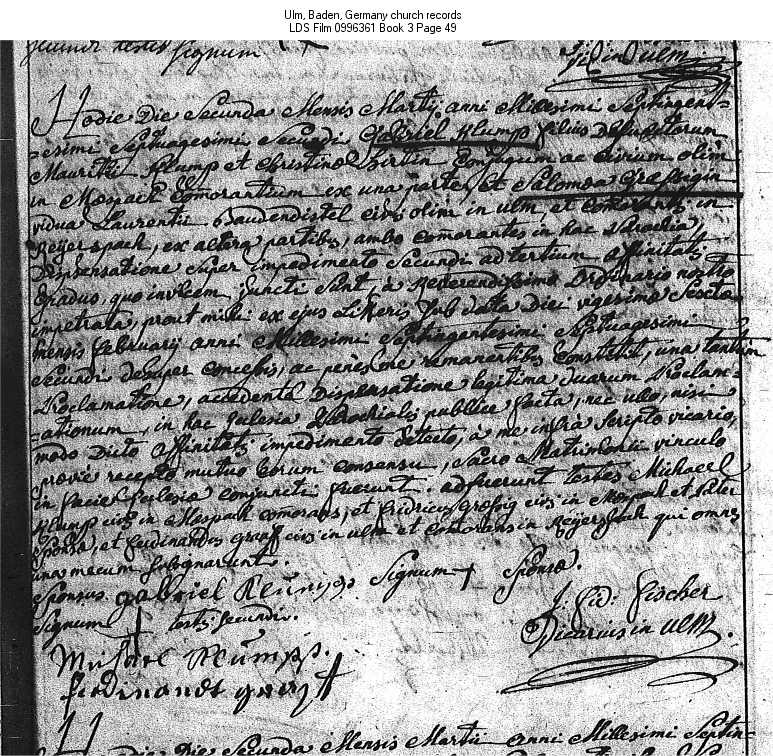 Ulm, Baden, Germany church records
LDS Film 0996361 Book 3 Page 49
testis Signum
in Ulm
Hodie Die Secunda Mensis Martij anni Millesimi Septingent=
=esimi Septuagesimi Secundi Gabriel Klump filius Defunctorum
Mauritii Klump et Christina Birtin Conjugum ac Civium olim
in Mospach Comorantium ex una parte, et Salomea Græssigin
vidua Laurentii Baudendistel civis olim in ulm, et Comorantis in
Reyerspach, ex altera partibus, ambo Comorantes in hac Parochia,
Dispensatione super impedimento Secundi ad tertium affinitatis
Gradus, quo invicem juncti sunt, a Reverendissimo Ordinario nostro
impetrata, prout mihi ex ejus Litteris sub data Diei vigesima Sexta
mensis februarij anni Millesimi Septingentesimi Septuagesimi
Secundi desuper concessis, ac penes me remanentibus constitit, una tantum
Proclamatione, accedente Dispensatione legitima duarum Proclam=
=ationum, in hac Eclesia Parochiali publice facta, nec ullo, nisi
modo Dicto affinitatis impedimento detecto, a me infra Scripto vicario,
provie recepto mutuo Eorum consensu, Sacro Matrimonii vinculo
in facie Eclesia conjuncti fuerunt. adfuerunt testes Michael
Klump civis in Mospach comorans, et fridricus Græssig civis in Mospach et Pater
Sponsa, et ferdinandus graff civis in ulm et Comorans in Reyerspach qui omnes
una mecum subsignarunt.
Sponsus gabriel Klumpp Signum + Sponsæ.
Signum + testis secundi.
J: fid: fischer
Vicarius in ulm.
Michael Klumpp.
ferdinandt graff
Hodie Die Secunda Mensis Martii anni Millesimi Septin=